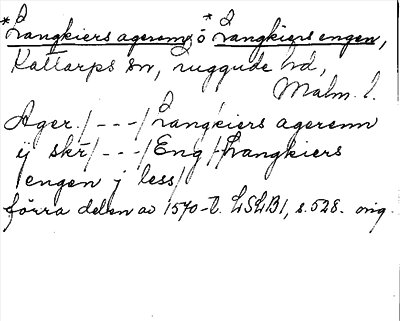 *Långkiers agerenn, o *Långkiers engen,
Kattarps sn, Luggude hd,
Malm. l.
Ager./---/Långkiers agerenn
ij skr/---/Eng/Langkiers
engen j less/
förra delen av 1570-t. LSLB1, s. 528. orig.